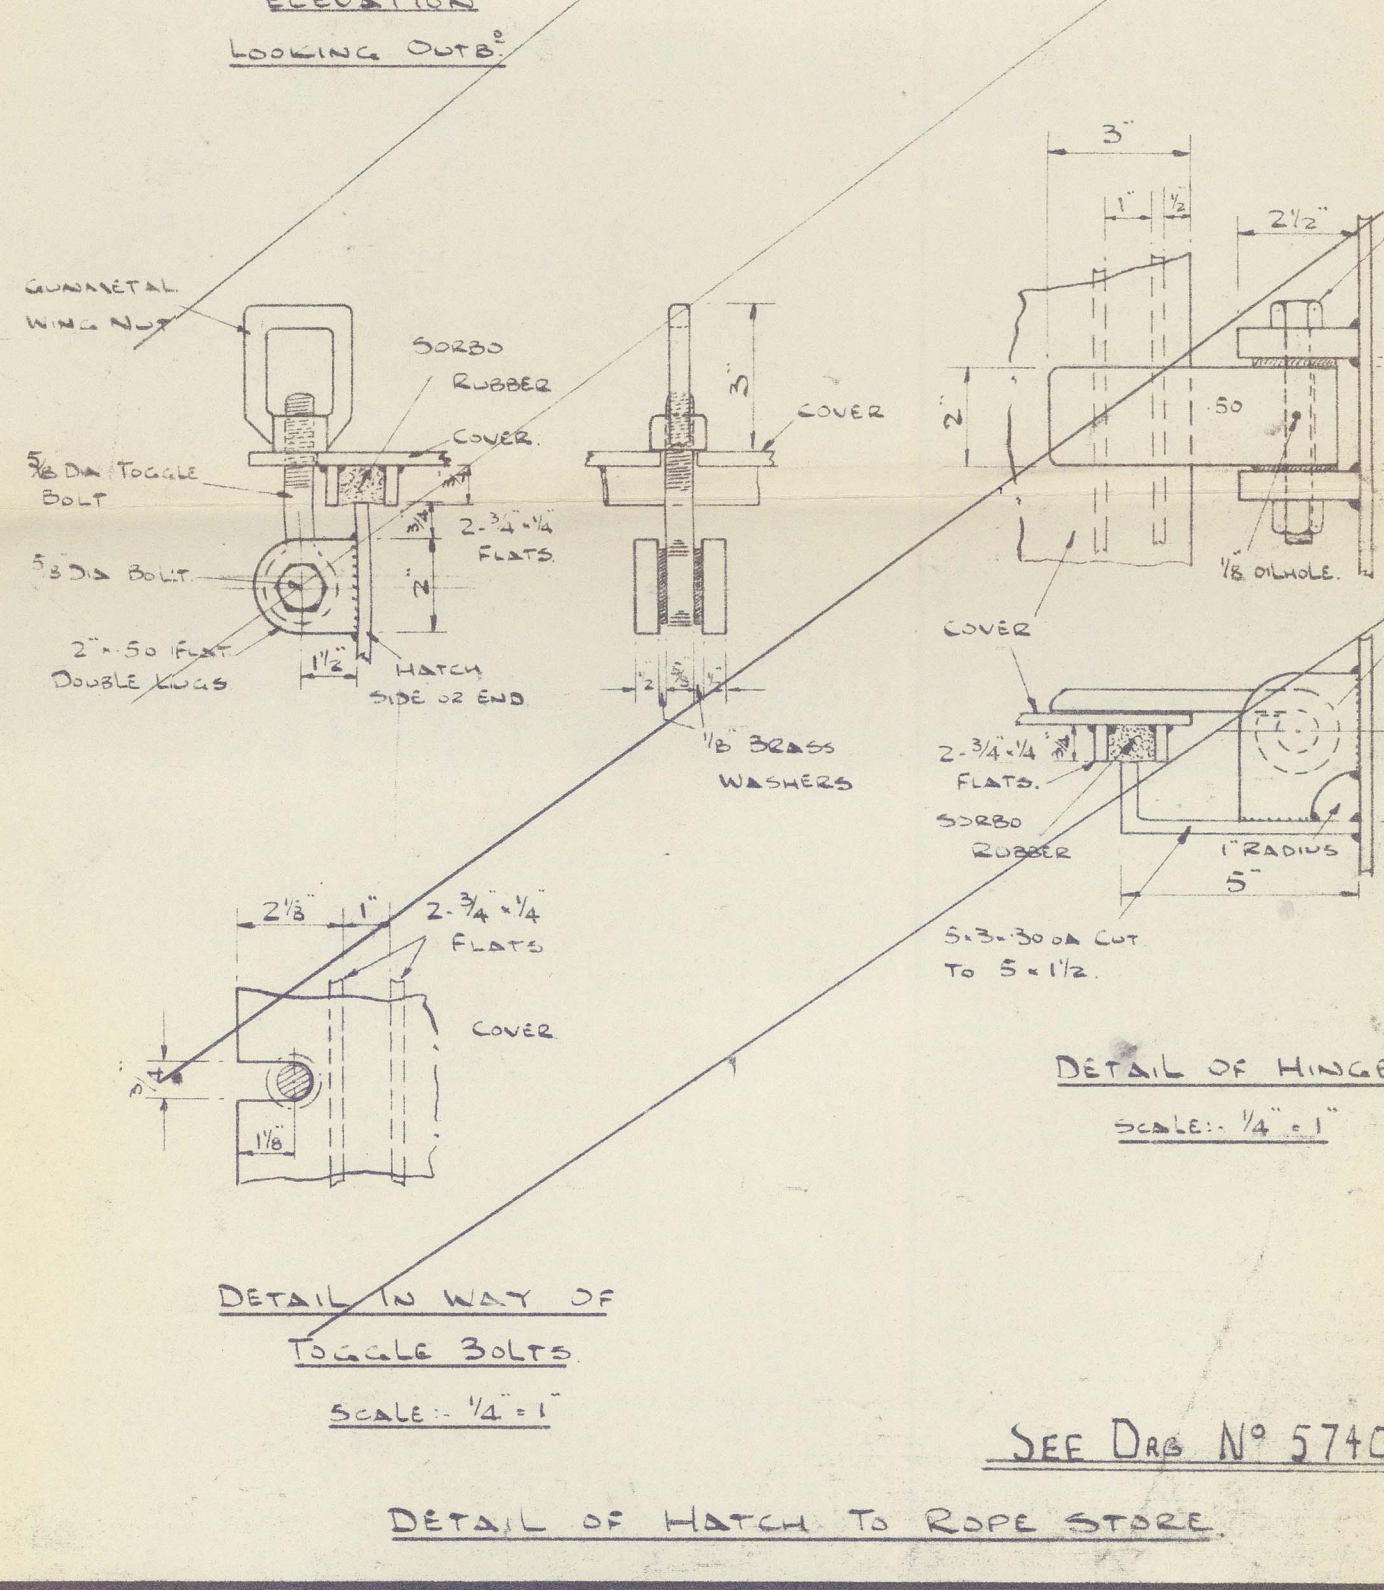 ELEVATION
LOOKING OUTBº.
GUNMETAL
WING NUT
SORBO
RUBBER
COVER.
5/8 DIA TOGGLE
BOLT
3/4
3/4
2-3/4"×1/4"
FLATS.
5/8 DIA BOLT.
2"
2"×.50 FLAT
DOUBLE LUGS
1 1/2"
HATCH
SIDE OR END
3"
COVER
1/2"
5/8"
1/2"
1/8" BRASS
WASHERS
3"
1"
1/2"
2 1/2"
2"
.50
1/8" OILHOLE.
COVER
2-3/4"×1/4"
FLATS.
3/4
SORBO
RUBBER
1" RADIUS
5"
5×3×.30 OA CUT
TO 5×1 1/2.
DETAIL OF HINGE
SCALE:- 1/4" = 1"
2 1/8"
1"
2-3/4"×1/4"
FLATS
COVER
3/4"
1 1/8"
DETAIL IN WAY OF
TOGGLE BOLTS.
SCALE:- 1/4" = 1"
SEE DRG Nº 5740
DETAIL OF HATCH TO ROPE STORE.